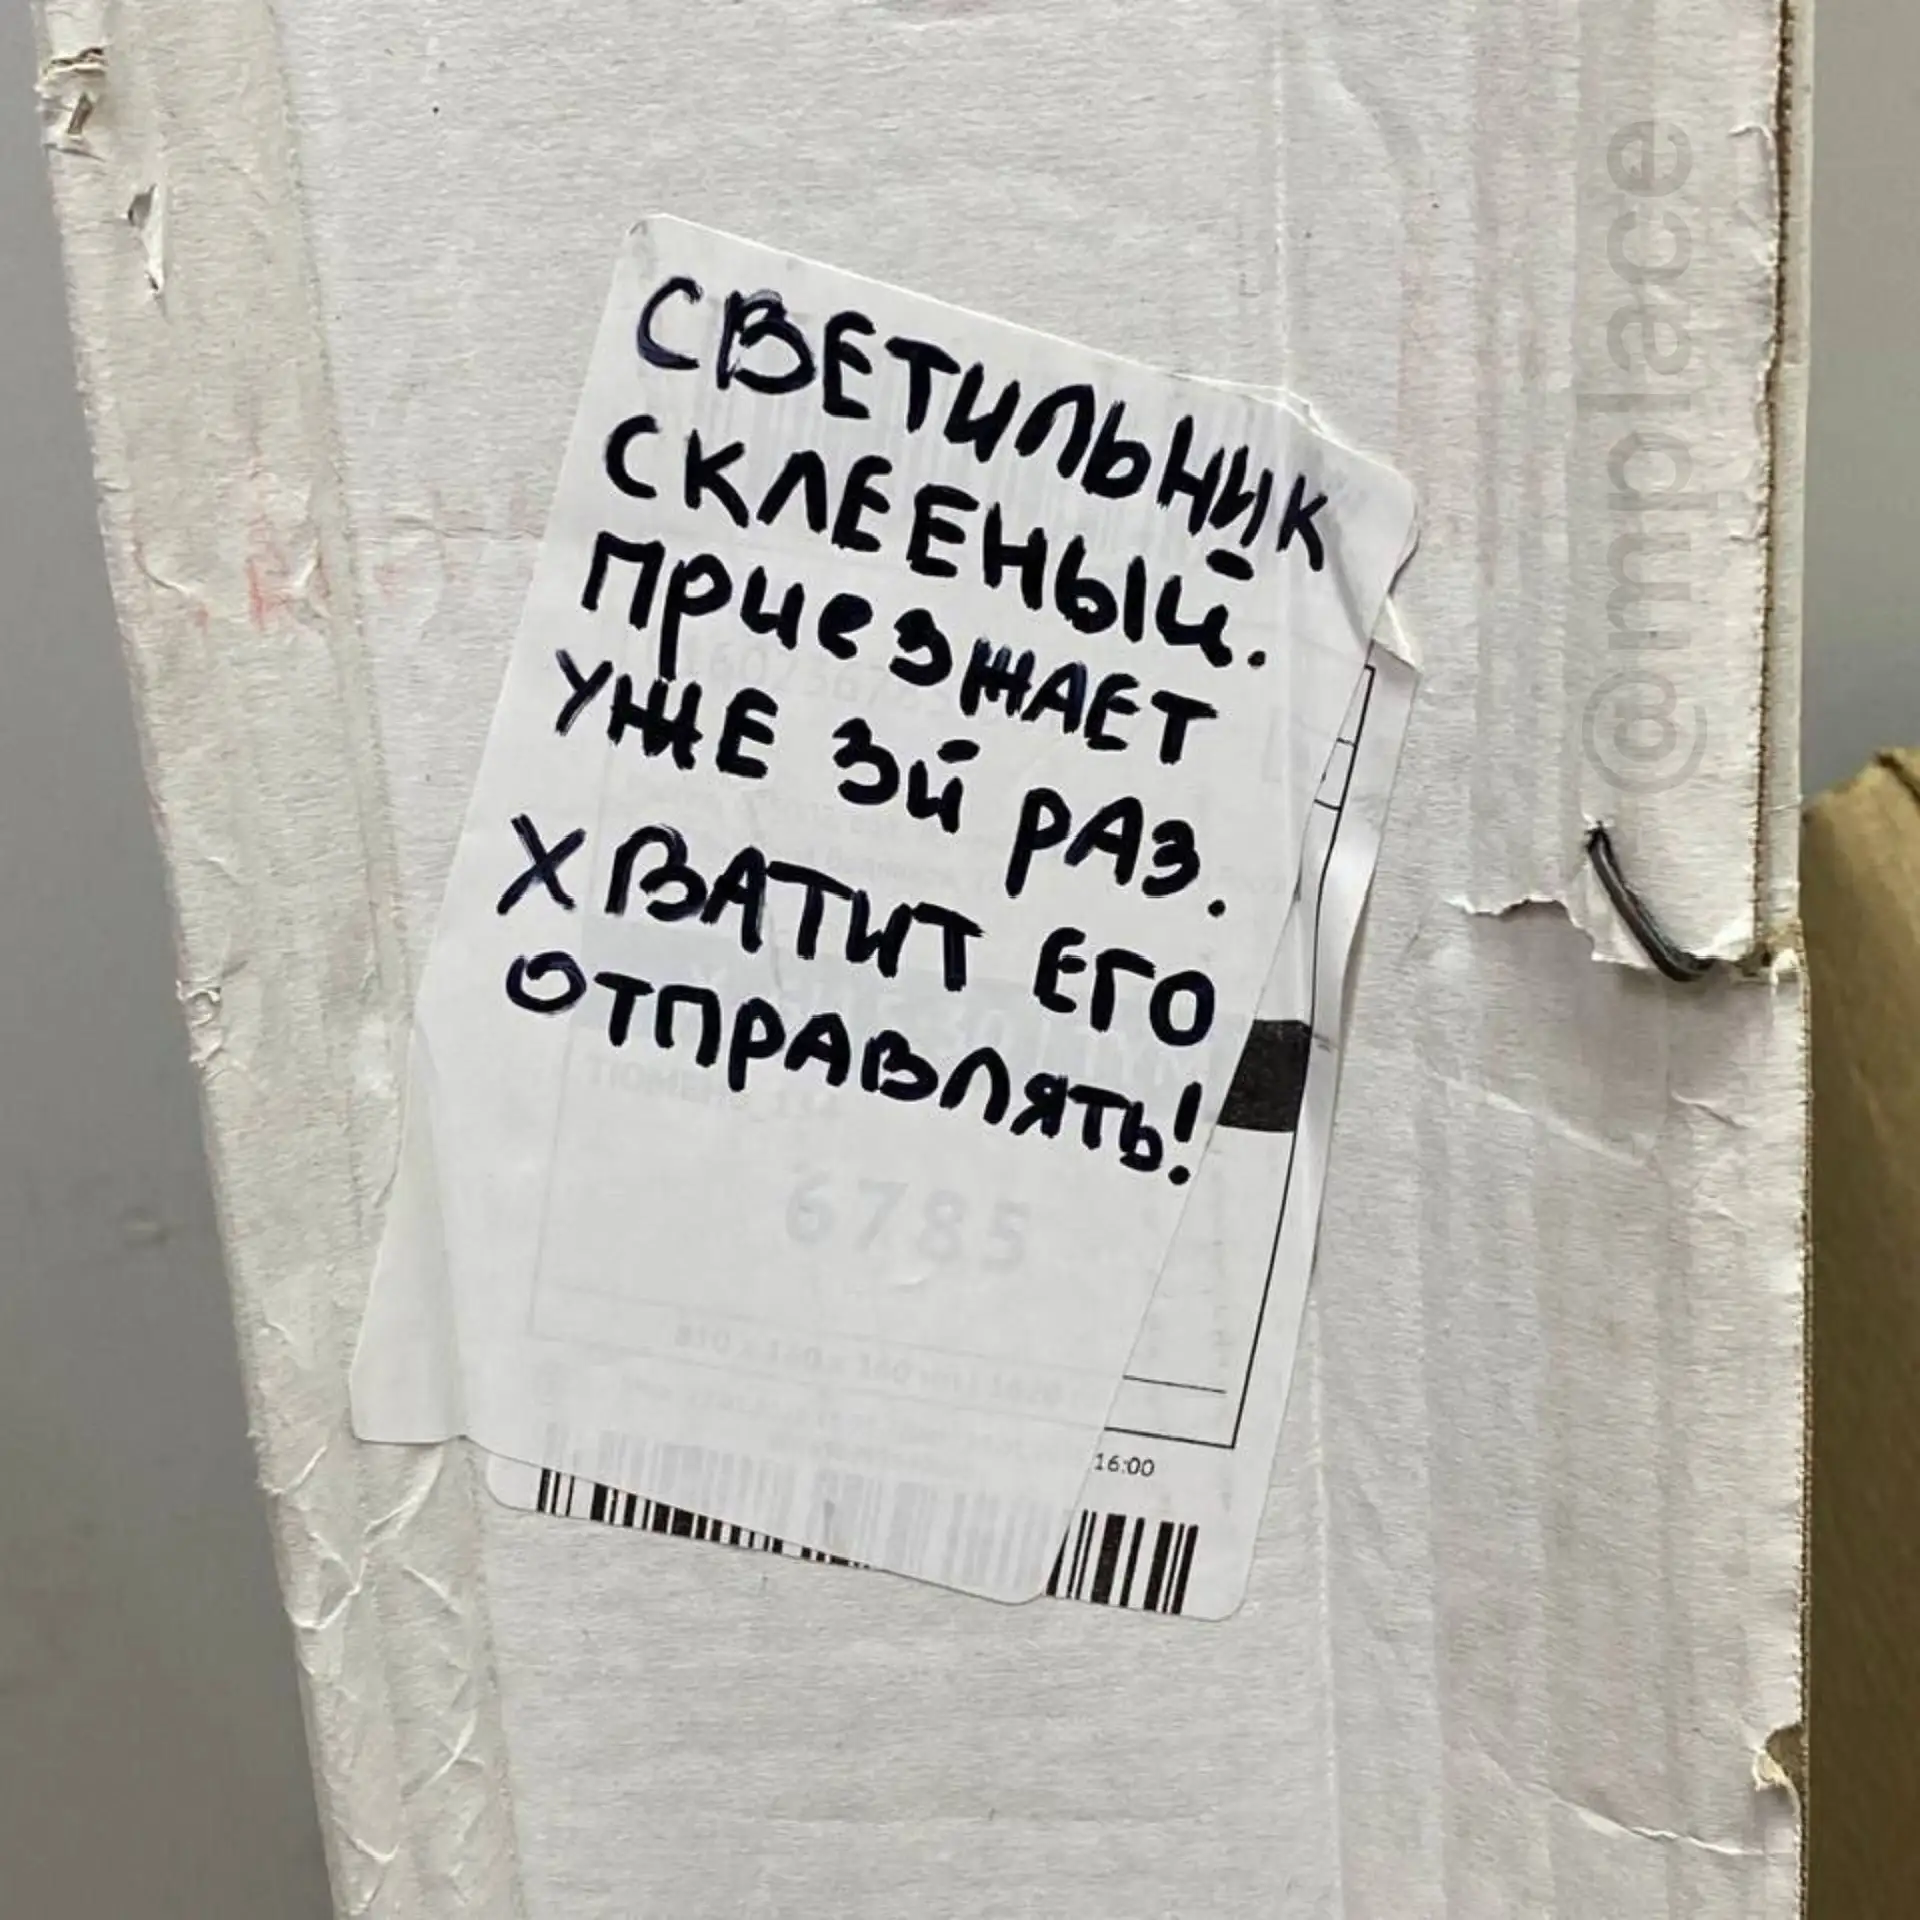 СВЕТИЛЬНИК
СКЛЕЕНЫЙ.
ПРИЕЗЖАЕТ
УЖЕ 3Й РАЗ.
ХВАТИТ ЕГО
ОТПРАВЛЯТЬ!
6785
16:00
@mplace